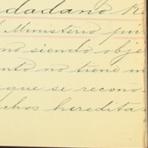 dadano
Ministerio pu
no siendo obje
nto no tiene n
que se recono
chos heredita